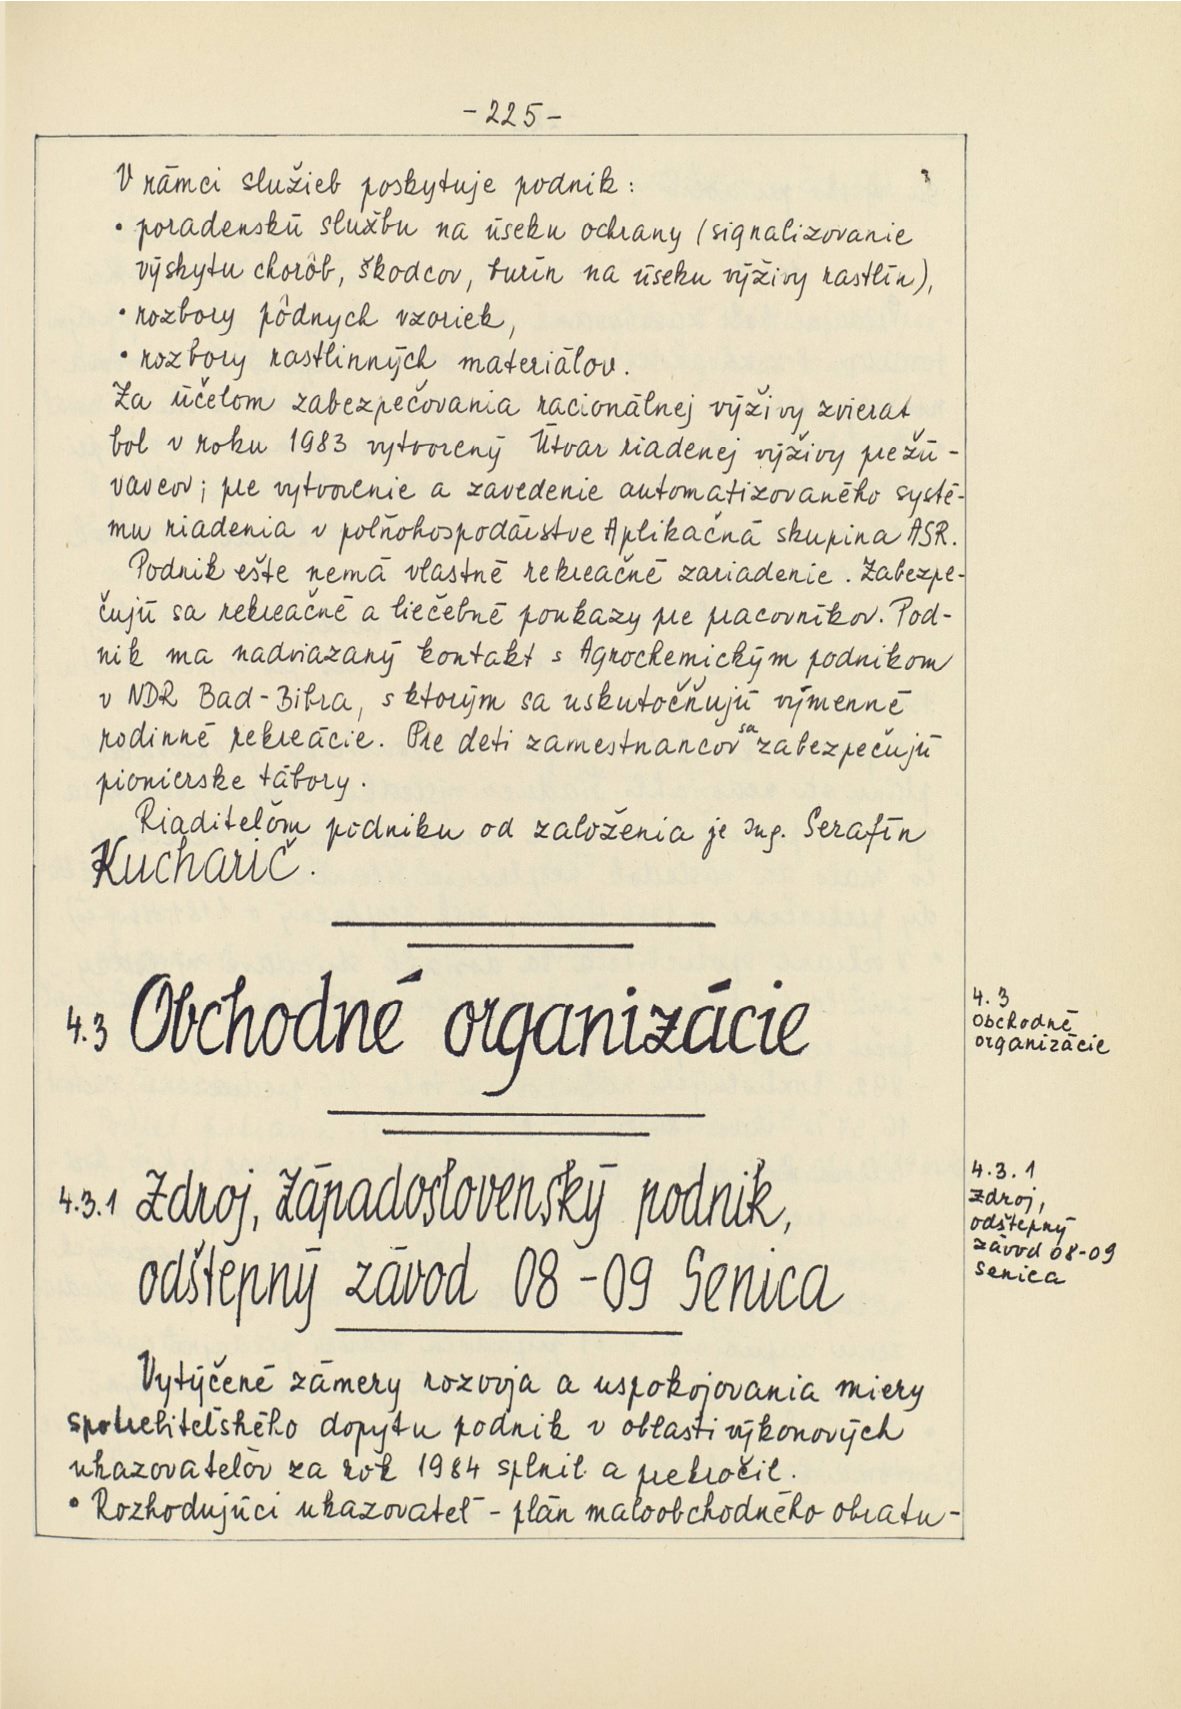 -225-
V rámci služieb poskytuje podnik:
• poradenskú službu na úseku ochrany (signalizovanie
výskytu chorôb, škodcov, burín na úseku výživy rastlín),
• rozbory pôdnych vzoriek,
• rozbory rastlinných materiálov.
Za účelom zabezpečovania racionálnej výživy zvierat
bol v roku 1983 vytvorený Útvar riadenej výživy prežú-
vavcov; pre vytvorenie a zavedenie automatizovaného systé-
mu riadenia v poľňohospodárstve Aplikačná skupina ASR.
Podnik ešte nemá vlastné rekreačné zariadenie. Zabezpe-
čujú sa rekreačné a liečebné poukazy pre pracovníkov. Pod-
nik ma nadviazaný kontakt s Agrochemickým podnikom
v NDR Bad-Bibra, s ktorým sa uskutočňujú výmenné
rodinné rekreácie. Pre deti zamestnancov sa zabezpečujú
pionierske tábory.
Riaditeľom podniku od založenia je Ing. Serafín
Kucharič.
4.3 Obchodné organizácie
4.3
Obchodné
organizácie
4.3.1 Zdroj, Západoslovenský podnik,
odštepný závod 08-09 Senica
4.3.1
Zdroj,
odštepný
závod 08-09
Senica
Vytýčené zámery rozvoja a uspokojovania miery
spotrebiteľského dopytu podnik v oblasti výkonových
ukazovateľov za rok 1984 splnil a prekročil.
• Rozhodujúci ukazovateľ - plán maloobchodného obratu-